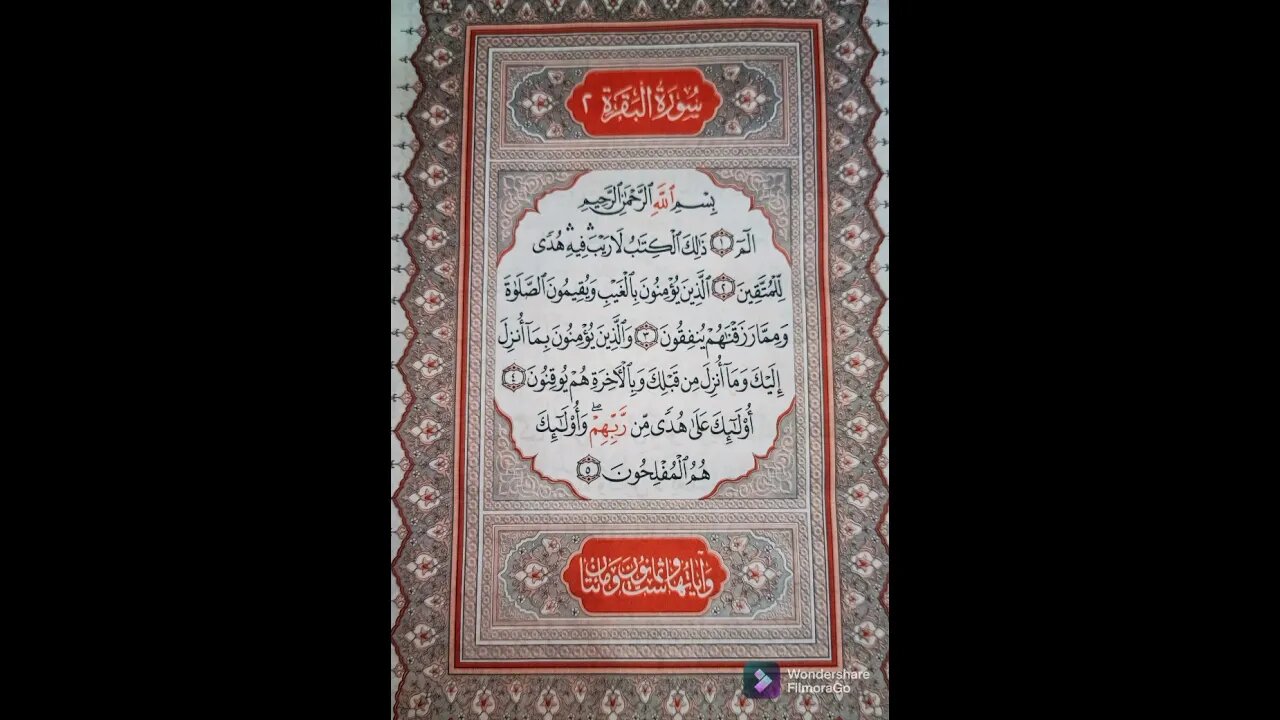 سُورَةُ الْبَقَرَةِ ٢
بِسْمِ ٱللَّهِ ٱلرَّحْمَٰنِ ٱلرَّحِيمِ
الٓمٓ ١ ذَٰلِكَ ٱلْكِتَٰبُ لَا رَيْبَ ۛ فِيهِ ۛ هُدًى
لِّلْمُتَّقِينَ ٢ ٱلَّذِينَ يُؤْمِنُونَ بِٱلْغَيْبِ وَيُقِيمُونَ ٱلصَّلَوٰةَ
وَمِمَّا رَزَقْنَٰهُمْ يُنفِقُونَ ٣ وَٱلَّذِينَ يُؤْمِنُونَ بِمَآ أُنزِلَ
إِلَيْكَ وَمَآ أُنزِلَ مِن قَبْلِكَ وَبِٱلْأَخِرَةِ هُمْ يُوقِنُونَ ٤
أُوْلَٰٓئِكَ عَلَىٰ هُدًى مِّن رَّبِّهِمْ ۖ وَأُوْلَٰٓئِكَ
هُمُ ٱلْمُفْلِحُونَ ٥
وَآيَاتُهَا سِتٌّ وَثَمَانُونَ وَمِائَتَانِ
Wondershare
FilmoraGo